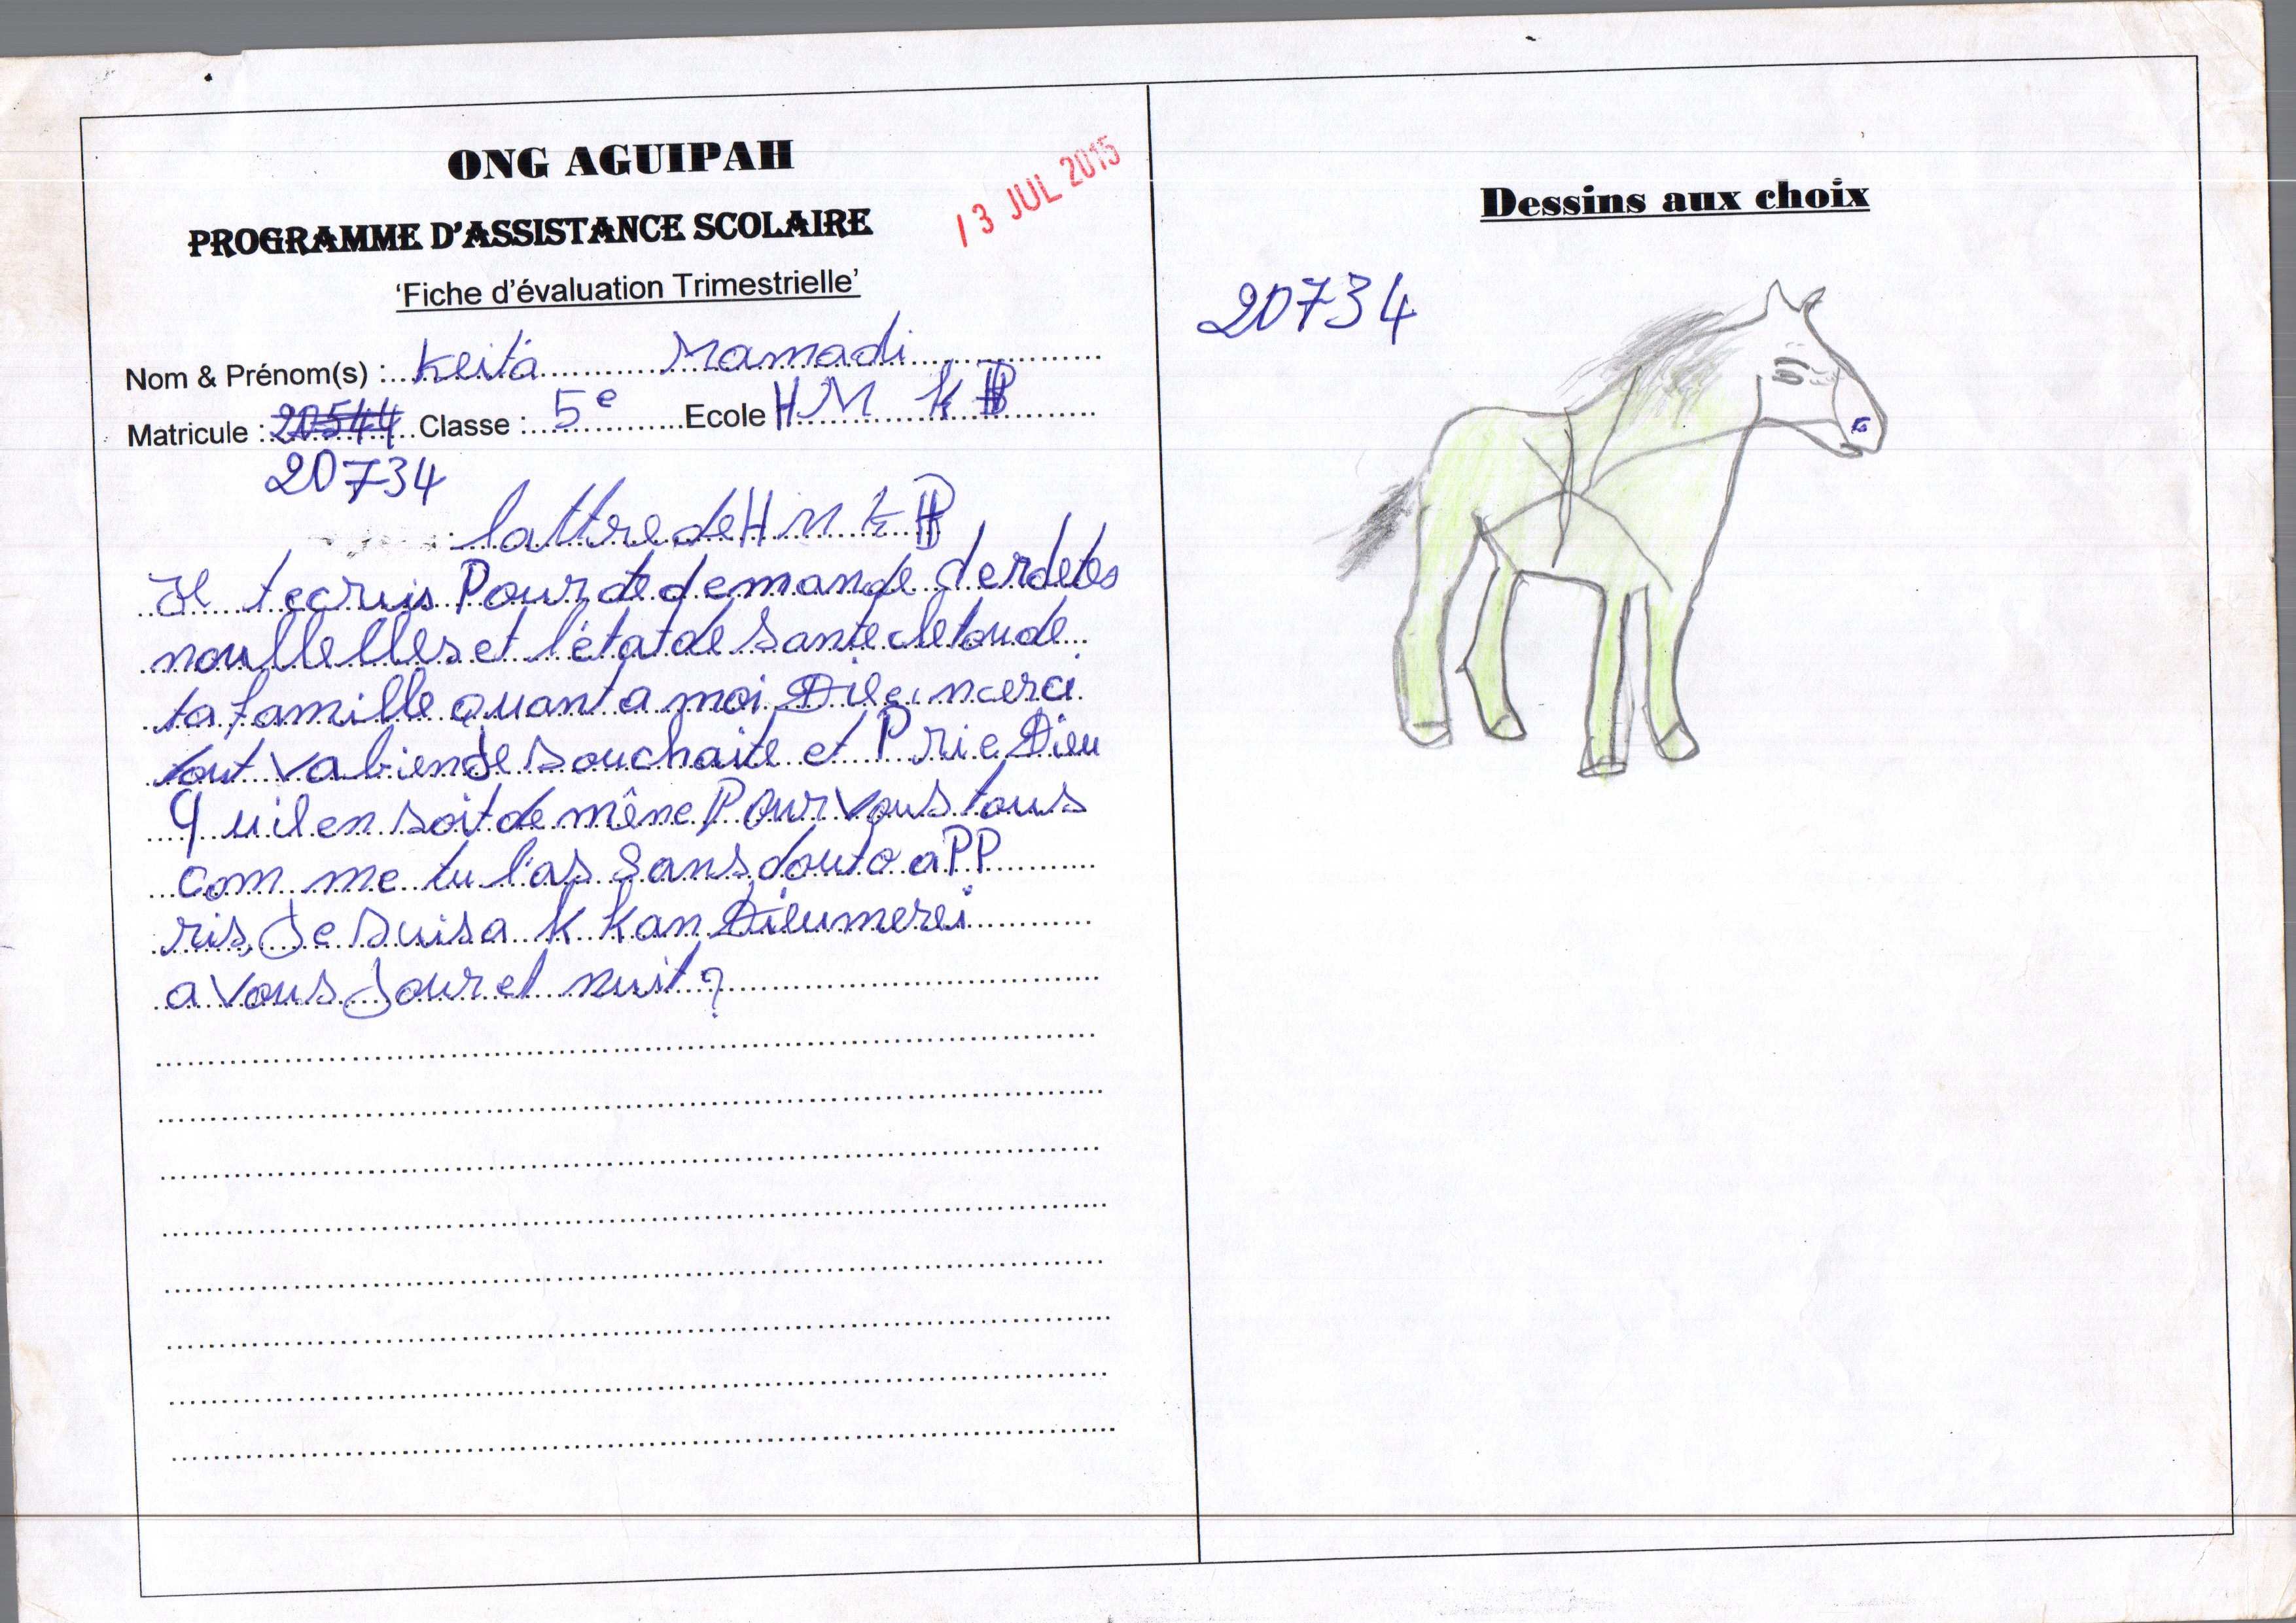 ONG AGUIPAH
PROGRAMME D'ASSISTANCE SCOLAIRE
13 JUL 2015
'Fiche d'évaluation Trimestrielle'
Nom & Prénom(s) : Keita Mamadi
Matricule : 20544 Classe : 5e Ecole HM K B
20734
lattre de H M K B
Je t ecruis Pour te demande de tes
noullelles et l'état de Sante de toude
ta famille quant a moi Dieu merci
tout va bien Je souchaite et Prie Dieu
Qu il en soit de même Pour vous tous
com me tu l'as Sans douto aPP
ris, Je Suis a K Kan Dieu merei
a vous Jour et nuit ?
Dessins aux choix
20734